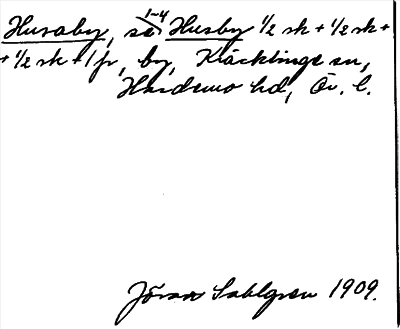 Husaby, se 1-4 Husby 1/2 sk + 1/2 sk +
+ 1/2 sk + 1 fr, by, Kräcklinge sn,
Hardemo hd, Ör. l.
Jöran Sahlgren 1909.